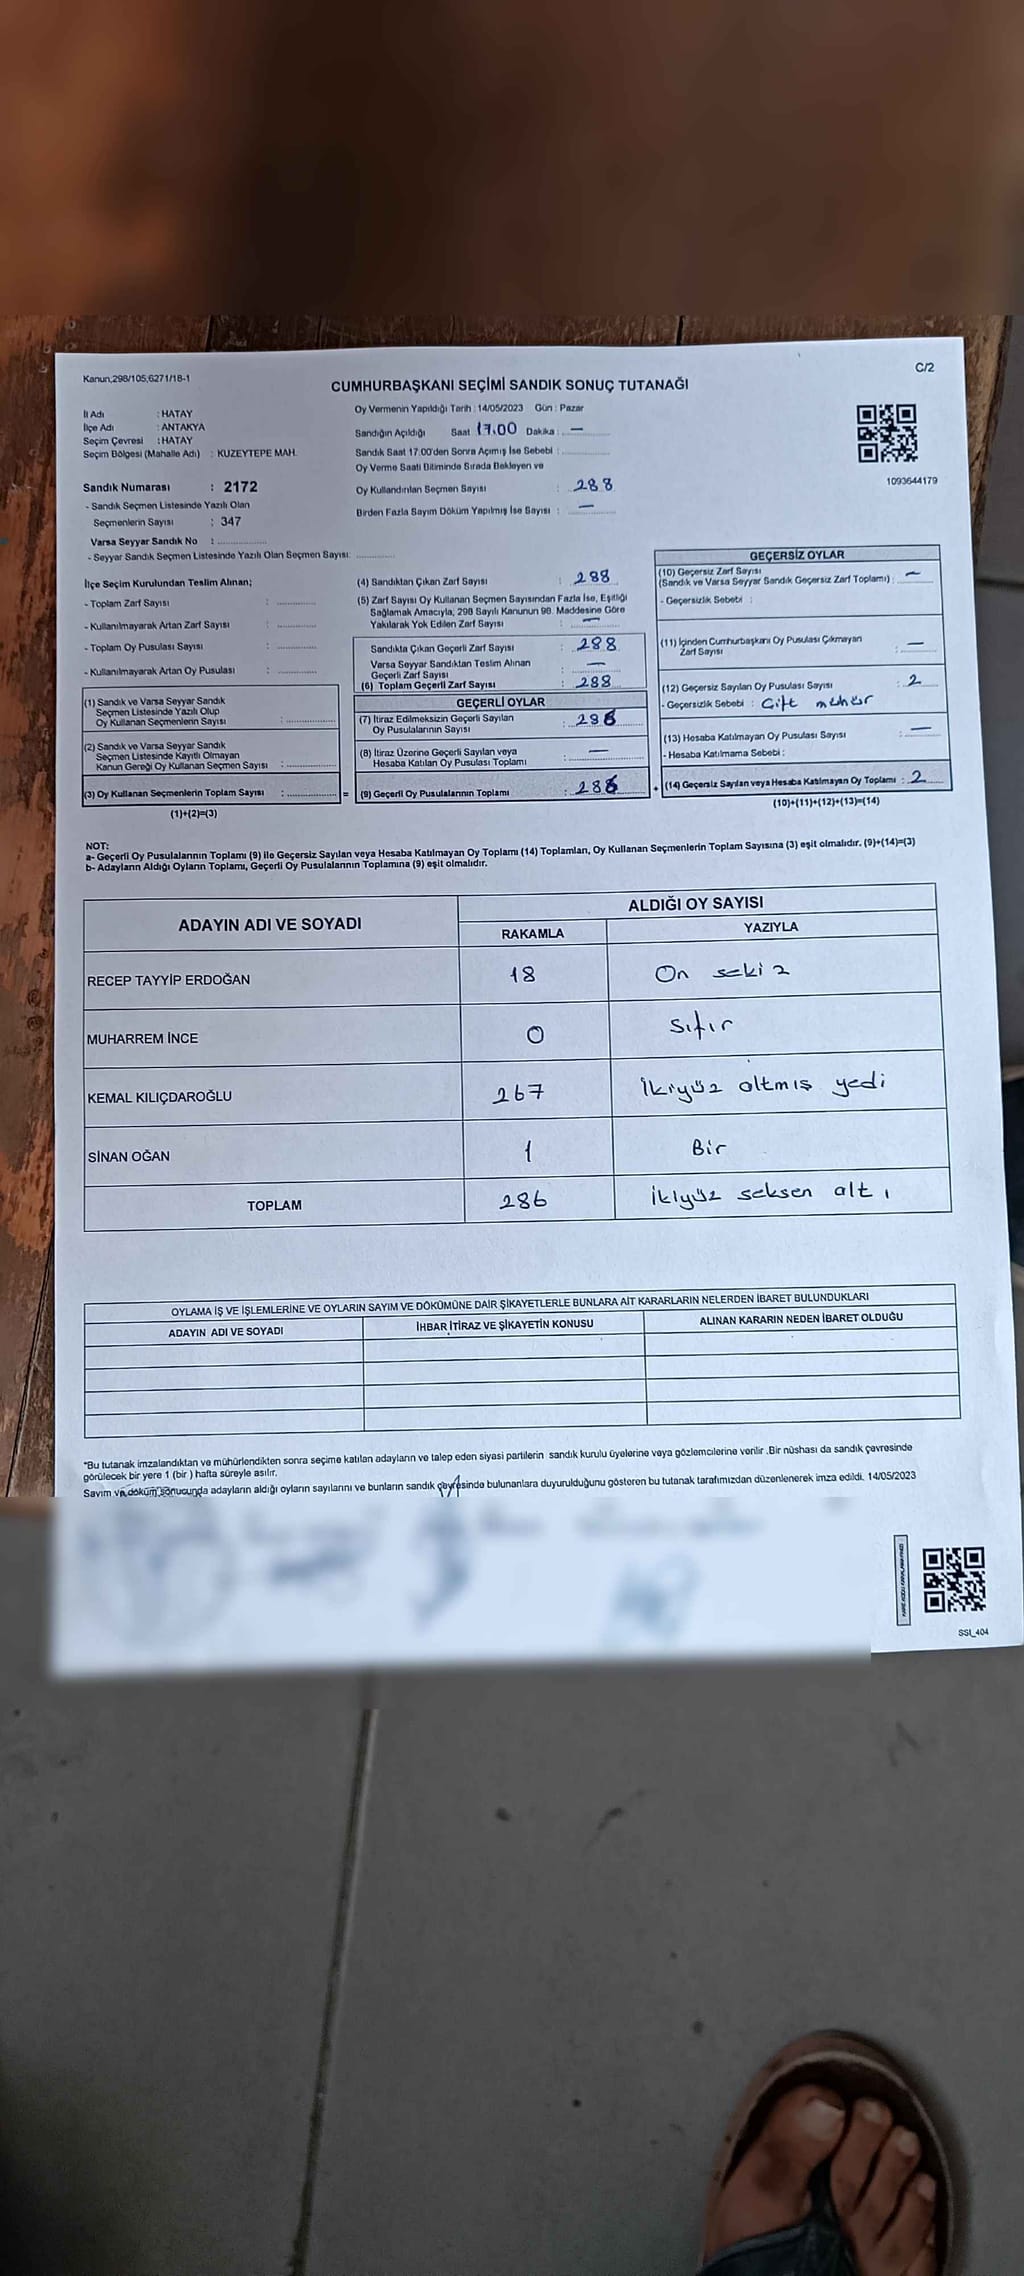 Kanun,298/105,6271/18-1
C/2
CUMHURBAŞKANI SEÇİMİ SANDIK SONUÇ TUTANAĞI
İl Adı : HATAY
İlçe Adı : ANTAKYA
Seçim Çevresi : HATAY
Seçim Bölgesi (Mahalle Adı) : KUZEYTEPE MAH.
Sandık Numarası : 2172
- Sandık Seçmen Listesinde Yazılı Olan
Seçmenlerin Sayısı : 347
Varsa Seyyar Sandık No :
- Seyyar Sandık Seçmen Listesinde Yazılı Olan Seçmen Sayısı:
Oy Vermenin Yapıldığı Tarih : 14/05/2023 Gün : Pazar
Sandığın Açıldığı Saat 17.00 Dakika : —
Sandık Saat 17:00'den Sonra Açımış İse Sebebi :
Oy Verme Saati Bitiminde Sırada Bekleyen ve
Oy Kullandırılan Seçmen Sayısı : 288
Birden Fazla Sayım Döküm Yapılmış İse Sayısı : —
1093644179
İlçe Seçim Kurulundan Teslim Alınan;
- Toplam Zarf Sayısı :
- Kullanılmayarak Artan Zarf Sayısı :
- Toplam Oy Pusulası Sayısı :
- Kullanılmayarak Artan Oy Pusulası :
(1) Sandık ve Varsa Seyyar Sandık
Seçmen Listesinde Yazılı Olup
Oy Kullanan Seçmenlerin Sayısı :
(2) Sandık ve Varsa Seyyar Sandık
Seçmen Listesinde Kayıtlı Olmayan
Kanun Gereği Oy Kullanan Seçmen Sayısı :
(3) Oy Kullanan Seçmenlerin Toplam Sayısı : =
(1)+(2)=(3)
(4) Sandıktan Çıkan Zarf Sayısı : 288
(5) Zarf Sayısı Oy Kullanan Seçmen Sayısından Fazla İse, Eşitliği
Sağlamak Amacıyla, 298 Sayılı Kanunun 98. Maddesine Göre
Yakılarak Yok Edilen Zarf Sayısı : —
Sandıkta Çıkan Geçerli Zarf Sayısı : 288
Varsa Seyyar Sandıktan Teslim Alınan
Geçerli Zarf Sayısı : —
(6) Toplam Geçerli Zarf Sayısı : 288
GEÇERLİ OYLAR
(7) İtiraz Edilmeksizin Geçerli Sayılan
Oy Pusulalarının Sayısı : 286
(8) İtiraz Üzerine Geçerli Sayılan veya
Hesaba Katılan Oy Pusulası Toplamı : —
(9) Geçerli Oy Pusulalarının Toplamı : 286 +
GEÇERSİZ OYLAR
(10) Geçersiz Zarf Sayısı
(Sandık ve Varsa Seyyar Sandık Geçersiz Zarf Toplamı) : —
- Geçersizlik Sebebi :
(11) İçinden Cumhurbaşkanı Oy Pusulası Çıkmayan
Zarf Sayısı : —
(12) Geçersiz Sayılan Oy Pusulası Sayısı : 2
- Geçersizlik Sebebi : Çift mühür
(13) Hesaba Katılmayan Oy Pusulası Sayısı : —
- Hesaba Katılmama Sebebi :
(14) Geçersiz Sayılan veya Hesaba Katılmayan Oy Toplamı : 2
(10)+(11)+(12)+(13)=(14)
NOT:
a- Geçerli Oy Pusulalarının Toplamı (9) ile Geçersiz Sayılan veya Hesaba Katılmayan Oy Toplamı (14) Toplamları, Oy Kullanan Seçmenlerin Toplam Sayısına (3) eşit olmalıdır. (9)+(14)=(3)
b- Adayların Aldığı Oyların Toplamı, Geçerli Oy Pusulalarının Toplamına (9) eşit olmalıdır.
ADAYIN ADI VE SOYADI ALDIĞI OY SAYISI
RAKAMLA YAZIYLA
RECEP TAYYİP ERDOĞAN 18 On sekiz
MUHARREM İNCE 0 sıfır
KEMAL KILIÇDAROĞLU 267 İkiyüz altmış yedi
SİNAN OĞAN 1 Bir
TOPLAM 286 ikiyüz seksen altı
OYLAMA İŞ VE İŞLEMLERİNE VE OYLARIN SAYIM VE DÖKÜMÜNE DAİR ŞİKAYETLERLE BUNLARA AİT KARARLARIN NELERDEN İBARET BULUNDUKLARI
ADAYIN ADI VE SOYADI İHBAR İTİRAZ VE ŞİKAYETİN KONUSU ALINAN KARARIN NEDEN İBARET OLDUĞU
*Bu tutanak imzalandıktan ve mühürlendikten sonra seçime katılan adayların ve talep eden siyasi partilerin sandık kurulu üyelerine veya gözlemcilerine verilir .Bir nüshası da sandık çevresinde
görülecek bir yere 1 (bir ) hafta süreyle asılır.
Sayım ve döküm sonucunda adayların aldığı oyların sayılarını ve bunların sandık çevresinde bulunanlara duyurulduğunu gösteren bu tutanak tarafımızdan düzenlenerek imza edildi. 14/05/2023
SSI_404